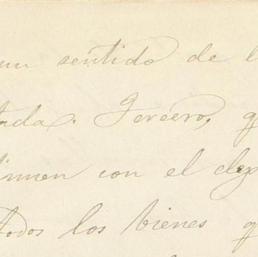 un sentido de l
nda. Tercero, q
inuen con el dep
todos los bienes q